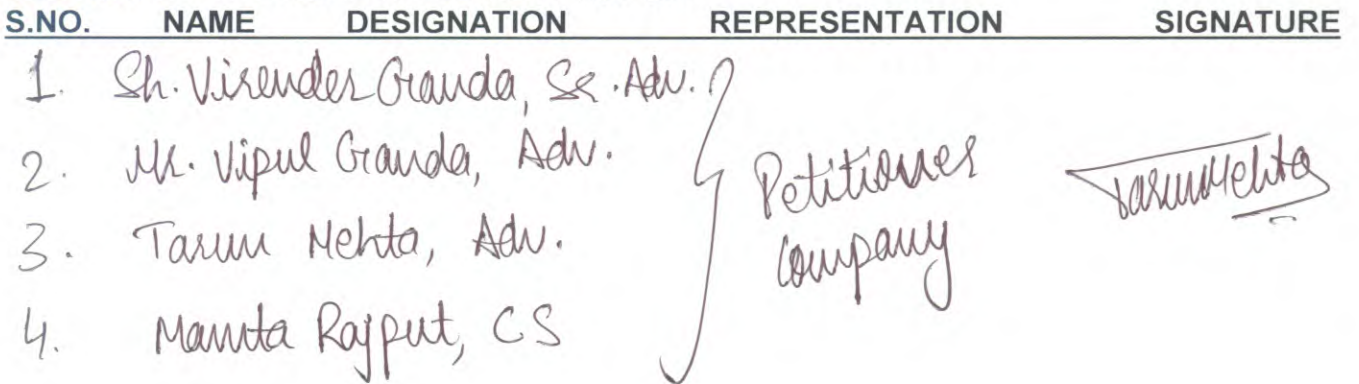 S.NO. NAME DESIGNATION REPRESENTATION SIGNATURE
1. Sh. Virender Ganda, Sr. Adv.
2. Mr. Vipul Ganda, Adv.
3. Tarun Mehta, Adv.
4. Mamta Rajput, CS
Petitioner
Company
Tarun Mehta